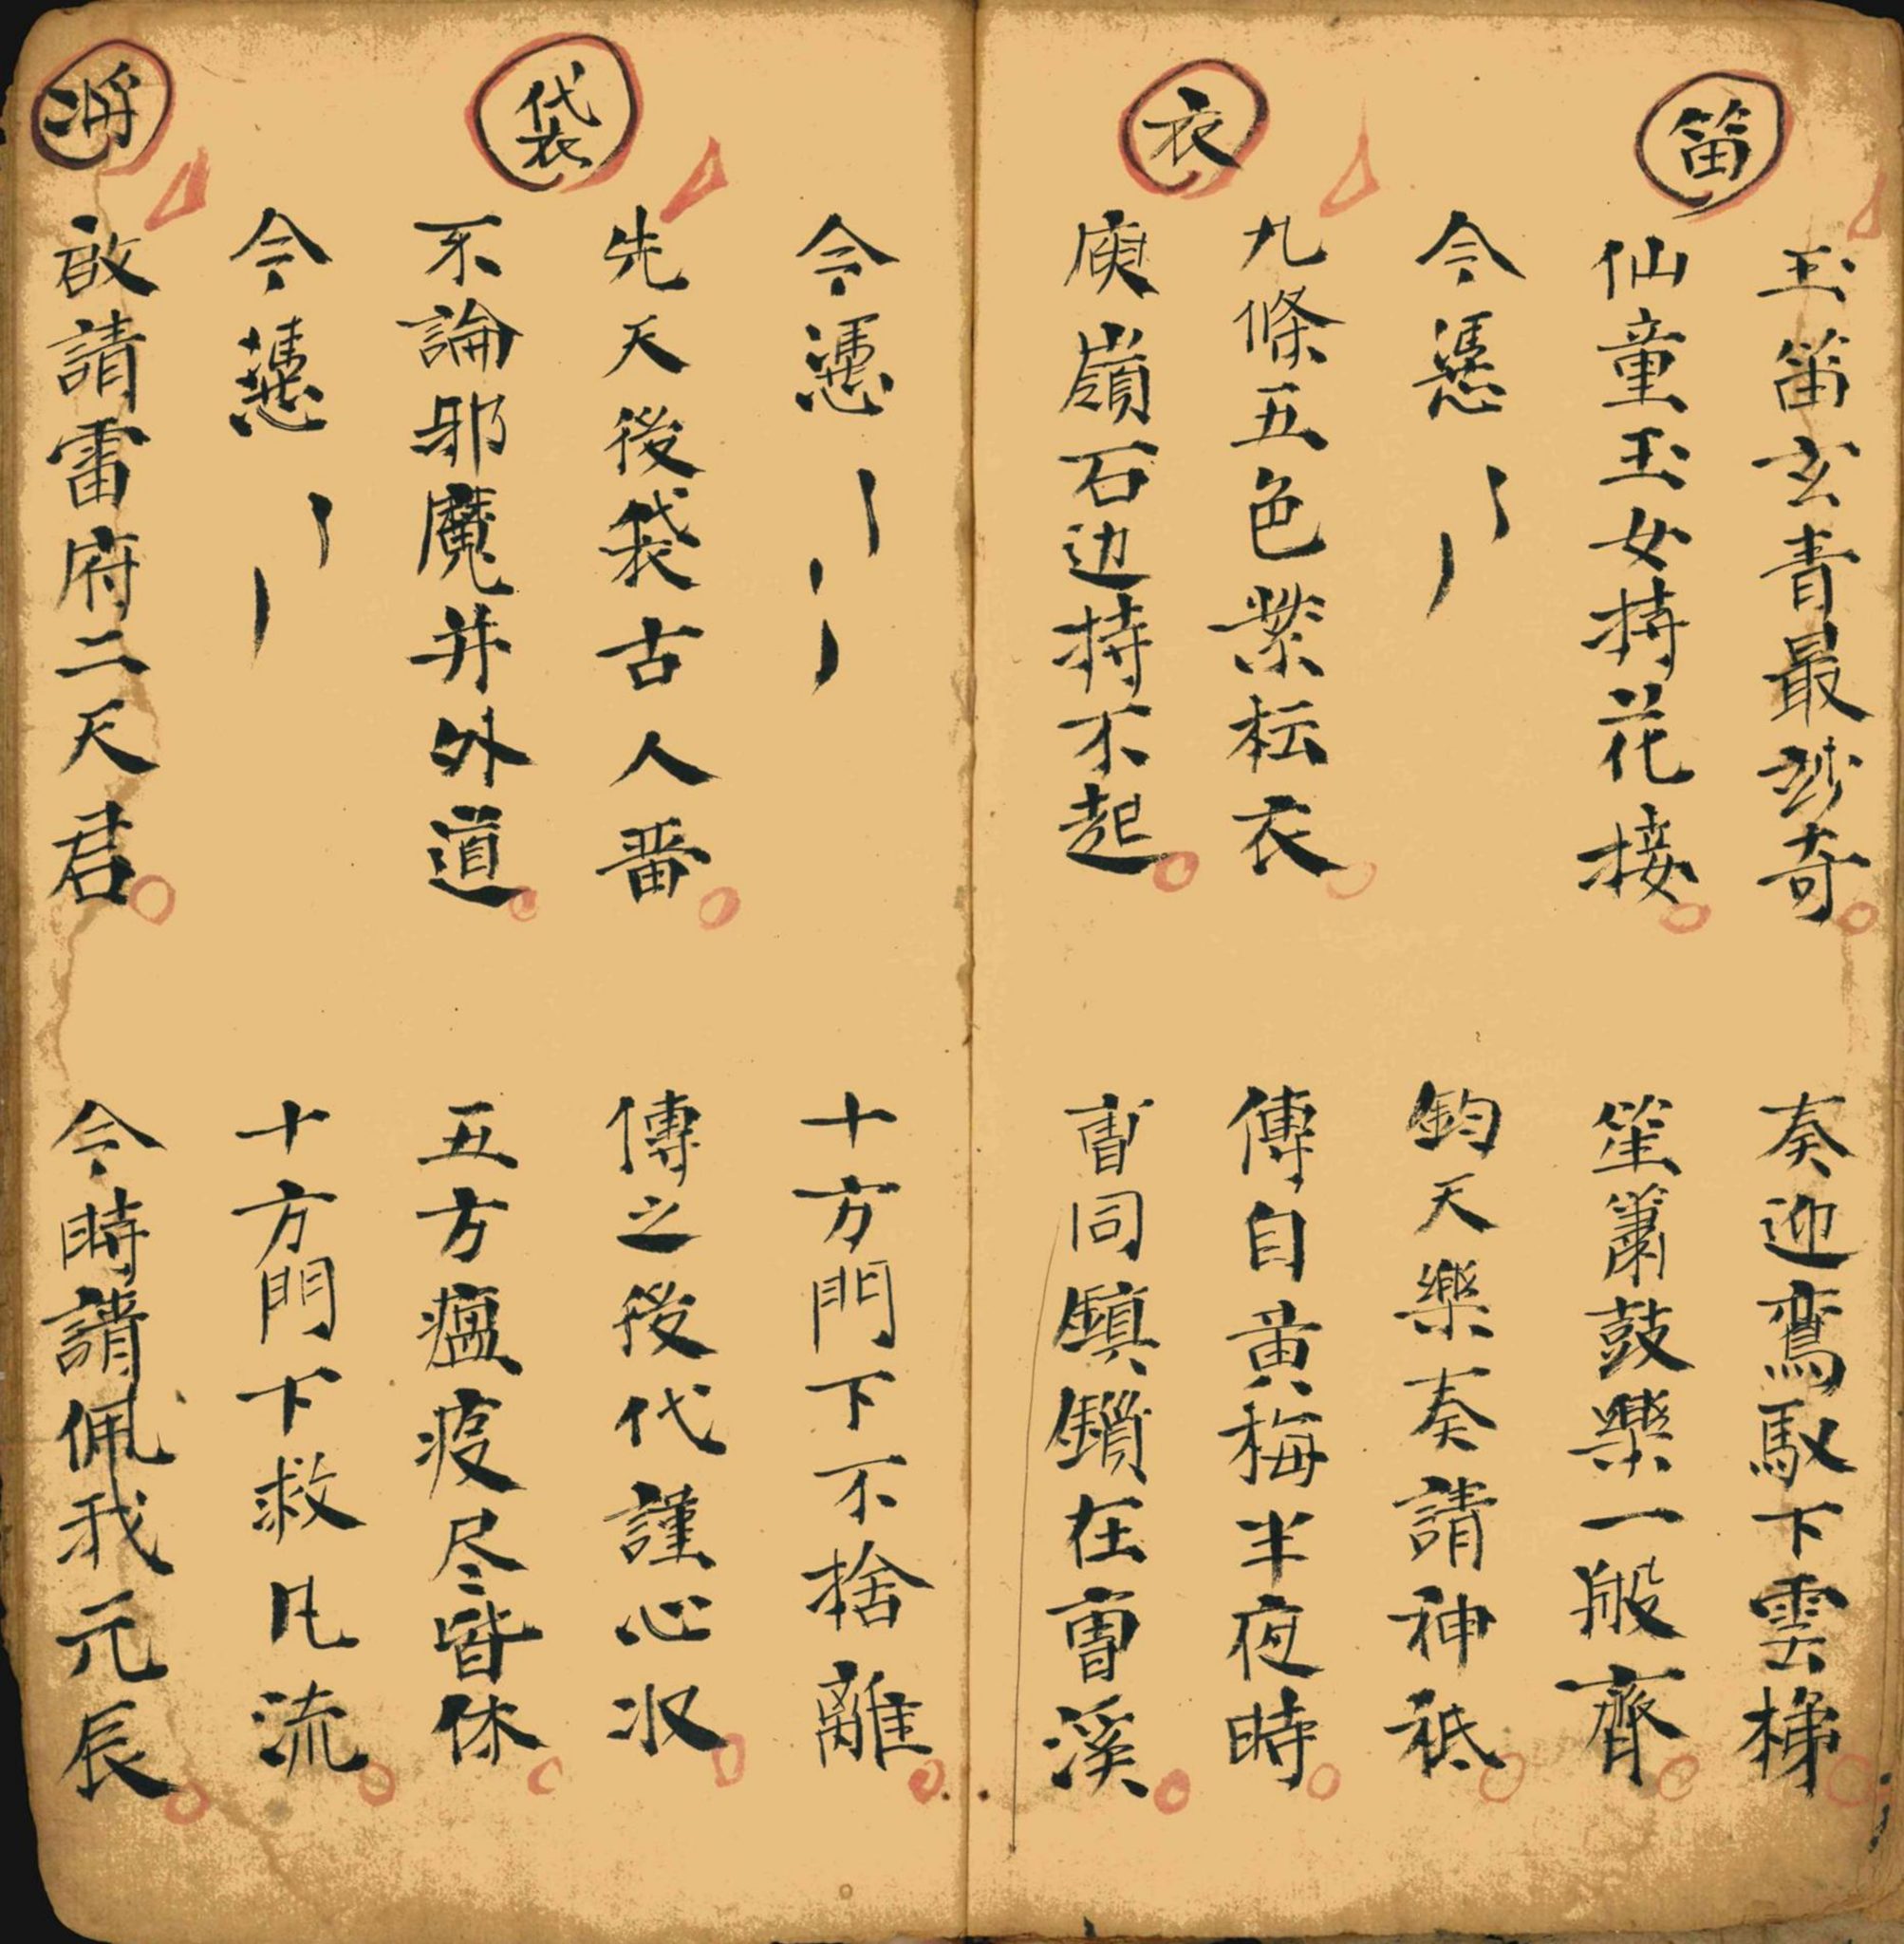 笛
玉笛玄青最玅奇　奏迎鸞馭下雲梯
仙童玉女持花接　笙簫鼓樂一般齊
今憑　鈞天樂奏請神祗
衣
九條五色紫紜衣　傳自黄梅半夜時
庾嶺石边持不起　曺同鎮鎖在曺溪
今憑　十方門下不捨離
袋
先天後袋古人畨　傳之後代謹心収
不論邪魔并外道　五方瘟疫尽皆休
今憑　十方門下救凡流
啟請雷府二天君　今時請佩我元辰